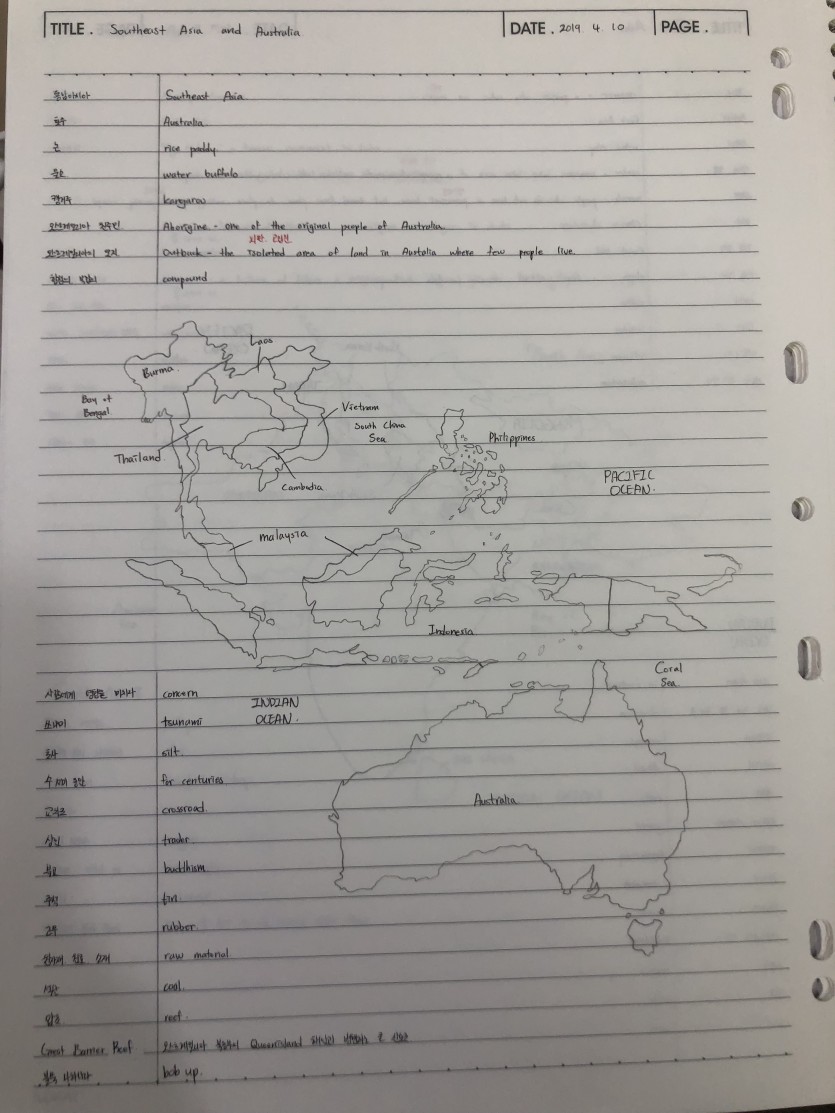 TITLE . Southeast Asia and Australia DATE . 2019 4. 10 PAGE .
동남아시아 Southeast Asia
호주 Australia
논 rice paddy
물소 water buffalo
캥거루 kangaroo
오스트레일리아 원주민 Aborigine - one of the original people of Australia
Outback - the Isolated area of land in Australia where few people live.
compound
Laos
Burma
Bay of
Bengal
Vietnam
South China
Sea
Philippines
Thailand
Cambodia
PACIFIC
OCEAN.
malaysia
Indonesia
Coral
Sea
concern
INDIAN
OCEAN.
쓰나미 tsunami
토사 silt.
for centuries
교차로 crossroad.
상인 trader
불교 buddhism
주석 tin.
고무 rubber.
raw material
석탄 coal.
암초 reef.
Australia
Great Barrier Reef 오스트레일리아 Queensland
bob up.